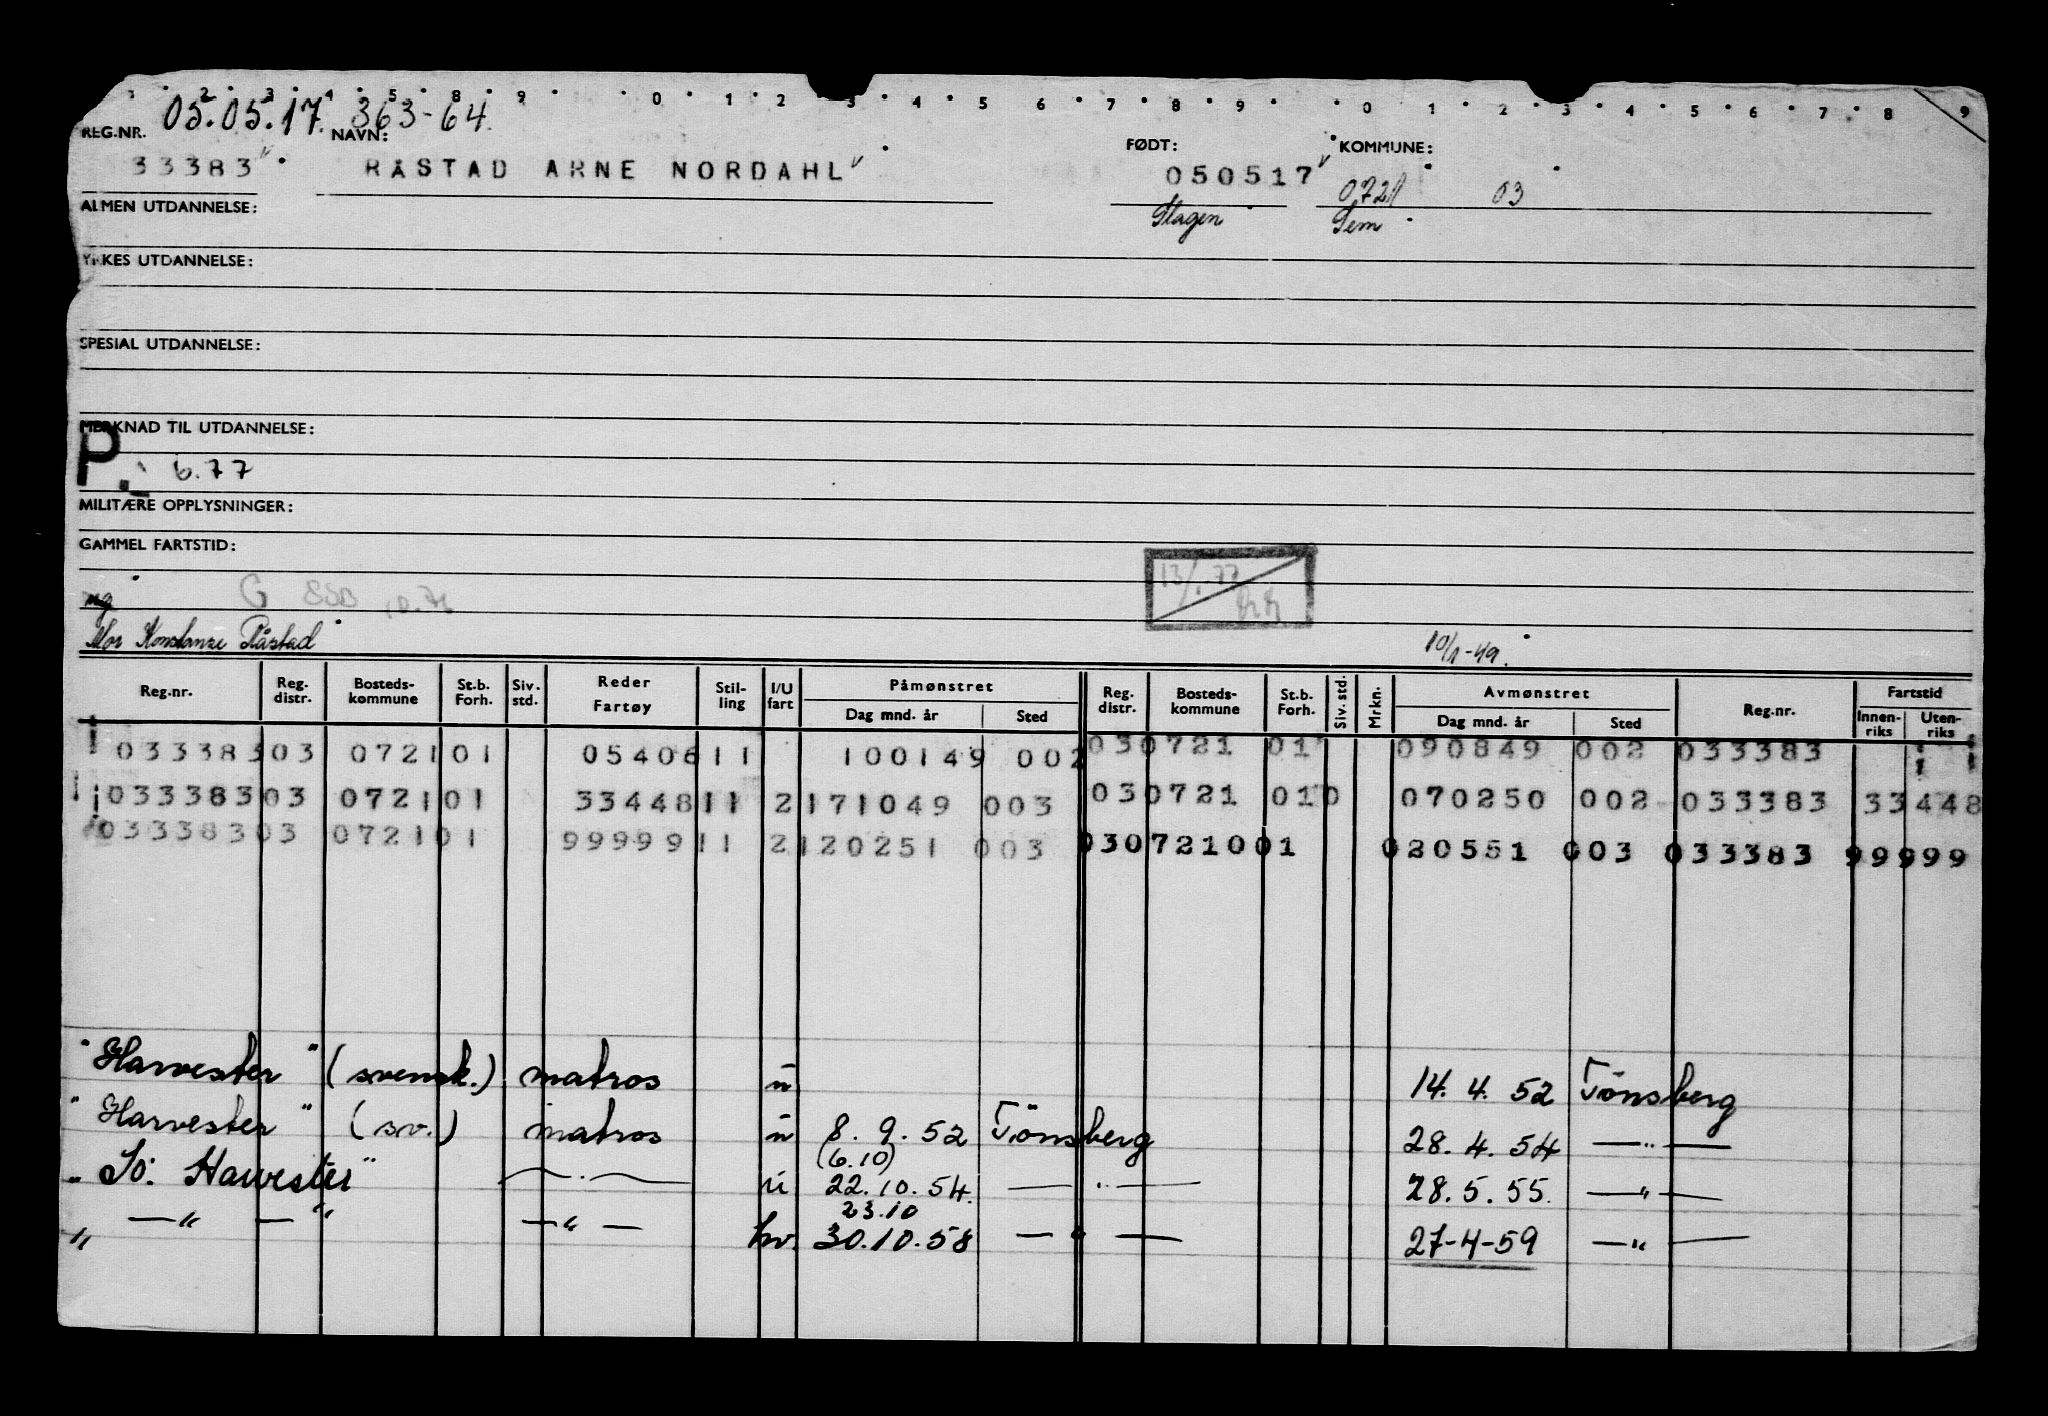 1 2 3 4 5 8 9 0 1 2 3 4 5 6 7 8 9 0 1 2 3 4 5 6 7 8 9
05.05.17. 363-64.
REG.NR. NAVN: FØDT: KOMMUNE:
33383 RÅSTAD ARNE NORDAHL 050517 0721 03
ALMEN UTDANNELSE: Slagen Sem
YRKES UTDANNELSE:
SPESIAL UTDANNELSE:
MERKNAD TIL UTDANNELSE:
P. 6.77
MILITÆRE OPPLYSNINGER:
GAMMEL FARTSTID:
ug G SSB 10.76
Mor Konstanse Råstad 10/1-49.
Reg.nr. Reg. distr. Bosteds-kommune St.b. Forh. Siv. std. Reder Fartøy Stil-ling I/U fart Påmønstret Dag mnd. år Sted Reg. distr. Bosteds-kommune St.b. Forh. Siv. std. Mrkn. Avmønstret Dag mnd. år Sted Reg.nr. Fartstid Innen-riks Uten-riks
033383 03 0721 01 05406 11 100149 002 03 0721 01 090849 002 033383
033383 03 0721 01 33448 11 2 171049 003 03 0721 010 070250 002 033383 33448
033383 03 0721 01 99999 11 2 120251 003 03 07210 01 020551 003 033383 99999
"Harvester" (svensk.) matros u 14.4.52 Tönsberg
"Harvester" (sv.) matros u 8.9.52 Tönsberg 28.4.54 —"—
(6.10)
"Sö. Harvester" —"— u 22.10.54. —"— 28.5.55. —"—
23.10
" —"— —" —"— hv. 30.10.58 —"— 27-4-59 —"—